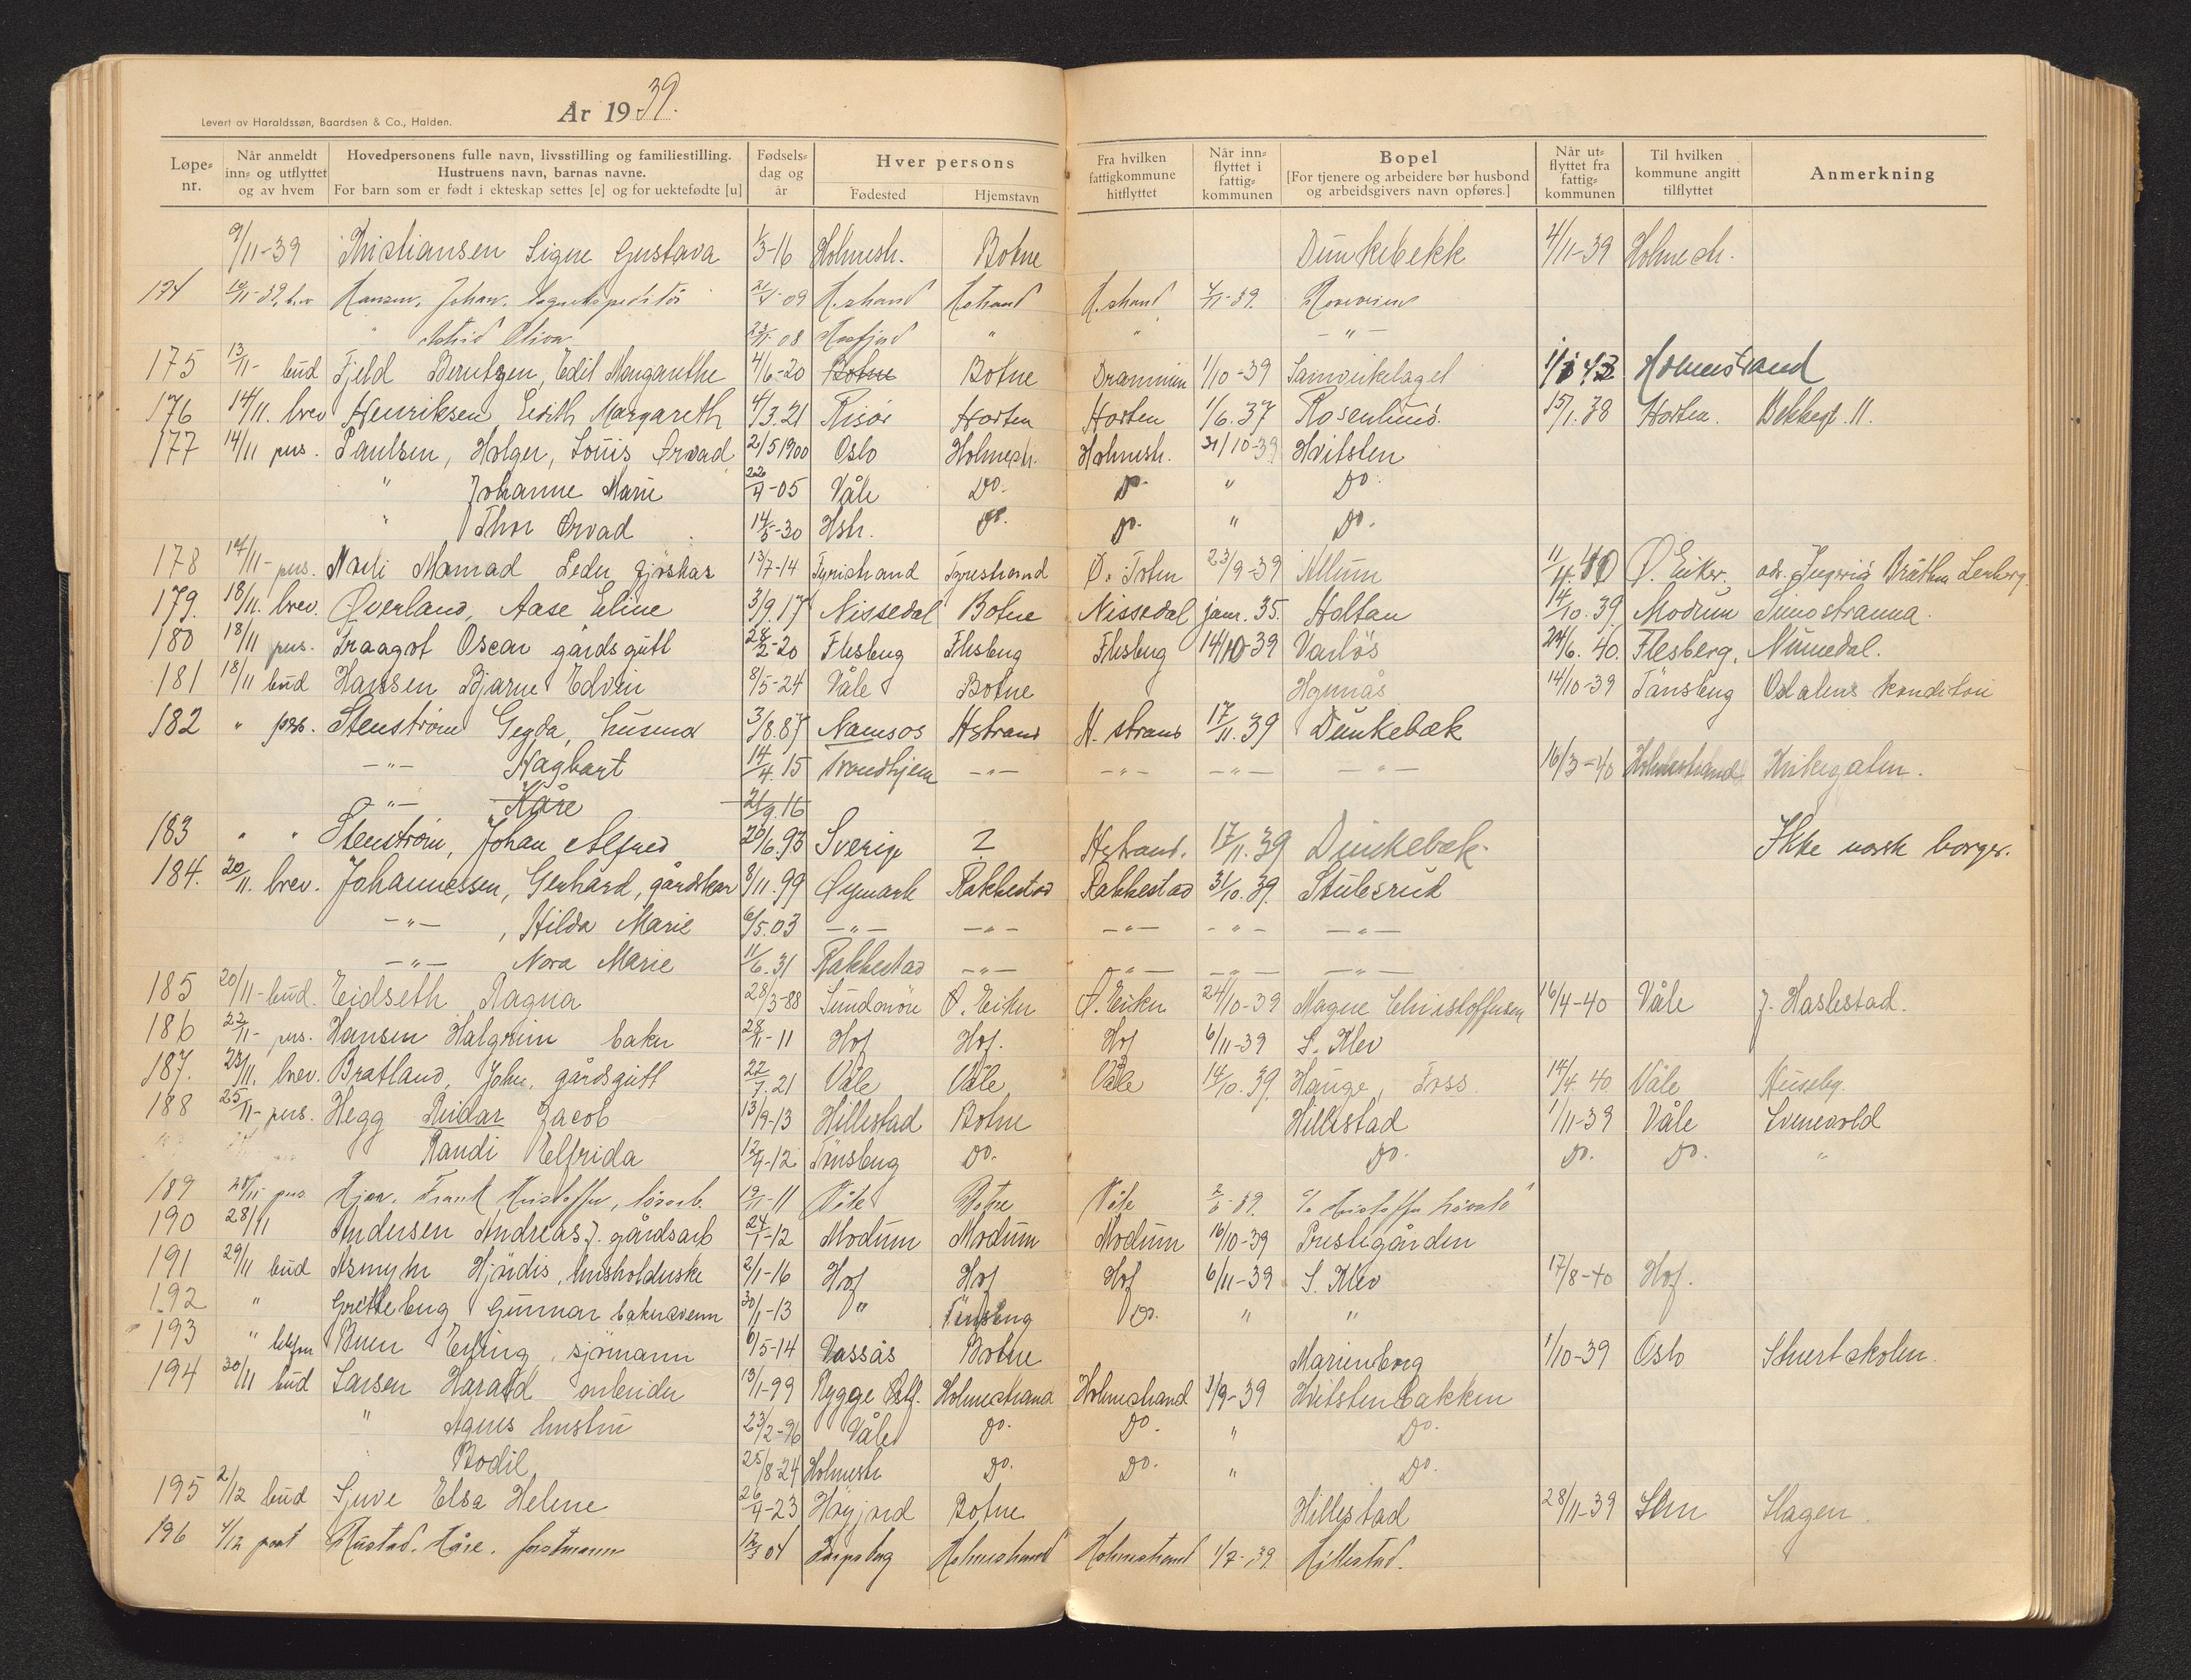 Levert av Haraldssøn, Baardsen & Co., Halden.
År 1939.
Løpe-nr. | Når anmeldt inn- og utflyttet og av hvem | Hovedpersonens fulle navn, livsstilling og familiestilling. Hustruens navn, barnas navne. For barn som er født i ekteskap settes [e] og for uektefødte [u] | Fødselsdag og år | Hver persons Fødested | Hjemstavn | Fra hvilken fattigkommune hitflyttet | Når innflyttet i fattigkommunen | Bopel [For tjenere og arbeidere bør husbond og arbeidsgivers navn opføres.] | Når utflyttet fra fattigkommunen | Til hvilken kommune angitt tilflyttet | Anmerkning
9/11-39 Kristiansen Signe Gustava 1/3-16 Holmestr. Botne Dunkebekk 4/11-39 Holmestr.
174 10/11-39 brev Hansen, Johan 09 H.strand Hstrand H.strand 39.
" Astrid Oliva 08 " "  — " —
175 13/11- bud Fjeld Berntzen, Edit Margarethe 4/6-20 Botne Botne Drammen 1/10-39 Samvirkelaget 43 Holmestrand
176 14/11. brev Henriksen Edith Margareth 4/3.21 Risør Horten Horten 1/6.37 Rosenlund. 15/1.38 Horten. Bekkegt. 11.
177 14/11 pers. Paulsen, Holger, Louis Arvad 2/5 1900 Oslo Holmestr. Holmestr. 31/10-39 Hvitsten
" Johanne Marie 22/4-05 Våle Do. Do. " Do.
" Thor Orvad 14/5-30 Hstr. Do. Do. " Do.
178 14/11- pers. Marli Mamad Peder gjøskar 13/7-14 Tyristrand Tyristrand 23/9-39 Allum 11/4.40 Ø. Eiker.
179. 18/11. brev. Øverland, Aase Eline 3/9.17 Nissedal Botne Nissedal jan. 35. Holtan 14/10.39 Modum Simostranna.
180 18/11 pers. Traagot Oscar gårdsgutt 28/2-20 Flesberg Flesberg Flesberg 14/10-39 Varløs 24/6.40. Flesberg, Numedal.
181 18/11 bud Hansen Bjarne Edvin 8/5-24 Våle Botne Hynnås 14/10-39 Tønsberg konditori
182 " pers. Stenstrøm Gyda, husmor 3/8.87 Namsos Hstrand H.strand 17/11.39 Dunkebæk
— " — Hagbart 14/4.15 Trondhjem — " — — " — — " — — " — 16/3-40 Holmestrand Kirkegaten.
— " — Kåre 21/9.16
183 " " Stenstrøm, Johan Alfred 20/6.93 Sverige ? Hstrand. 17/11.39 Dunkebæk. Ikke norsk borger.
184. 20/11. brev. Johannessen, Gerhard, gårdskar 8/11.99 Øymark Rakkestad Rakkestad 31/10.39. Stulesrud
— " — , Hilda Marie 6/5.03 — " — — " — — " — — " — — " —
— " — Nora Marie 11/6.31 Rakkestad — " — — " — — " — — " —
185 20/11- bud. Eidseth Ragna 28/3-88 Sundmöre Ø. Eiker Ø. Eiker 24/10-39 Magne Christoffersen 16/4-40 Våle J. Haslestad.
186 22/11- pers. Hansen Halgrim baker 28/11-11 Hof Hof. Hof 6/11-39 S. Klev
187. 23/11. brev. Bratland, John, gårdsgutt 22/7.21 Våle Våle Våle 14/10.39. Hauge, Foss 14/4.40 Våle Huseby.
188 25/11- pers. Hegg Reidar Jacob 13/9-13 Hillestad Botne Hillestad 1/11-39 Våle Svinevold
Randi Elfrida 12/4-12 Tönsberg Do. Do. Do. Do. "
189 28/11 pers. Frank Kristoffer, -11 Våle Botne Våle 39.
190 28/11 Andersen Andreas J. gårdsarb 24/1-12 Modum Modum Modum 16/10-39 Prestegården
191 29/11 bud Asmyhr Hjördis, husholderske 2/1-16 Hof Hof Hof 6/11-39 S. Klev 17/8-40 Hof.
192 " Gretteberg Gunnar bakersvenn 30/1-13 " Tönsberg Do. " "
193 " Buen Erling, sjömann 6/5-14 Vassås Botne Marienborg 1/10-39 Oslo Stuertskolen.
194 30/11 bud Larsen Harald arbeider 13/1-99 Rygge Östf. Holmestrand Holmestrand 1/9-39 Hvitstenbakken
" Agnes hustru 23/2-96 Våle Do. Do. " Do.
Bodil 25/8-24 Holmestr Do. Do. " Do.
195 2/12 bud Sjuve Elsa Helene 26/4-23 Höyjord Botne Hillestad 28/11-39 Sem Slagen.
196 4/12 post Rustad, Kåre, forstmann 12/3 04 Sarpsborg Holmestrand Holmestrand 1/7-39 Hillestad.